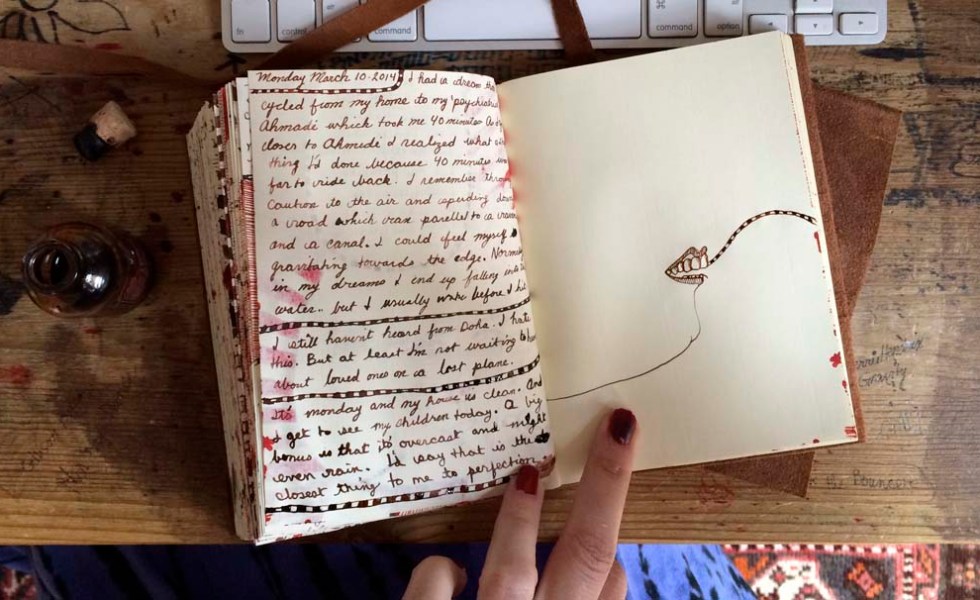 fn control command command option
Monday March 10-2014 I had a dream
cycled from my home to my psychiatri
Ahmadi which took me 40 minutes
closer to Ahmedi I realized what
thing I'd done because 40 minutes
far to ride back. I remember
caution to the air and speeding
a road which ran parellel to a
and a canal. I could feel myself
gravitating towards the edge.
in my dreams I end up falling
water.. but I usually wake before I
I still haven't heard from Doha. I hate
this. But at least I'm not waiting to
about loved ones on a lost plane.
It's monday and my house is clean. And
I get to see my children today. A big
bonus is that it's overcast and might
even rain. I'd say that is the
closest thing to me to perfection.
Gravity
the Bouncer